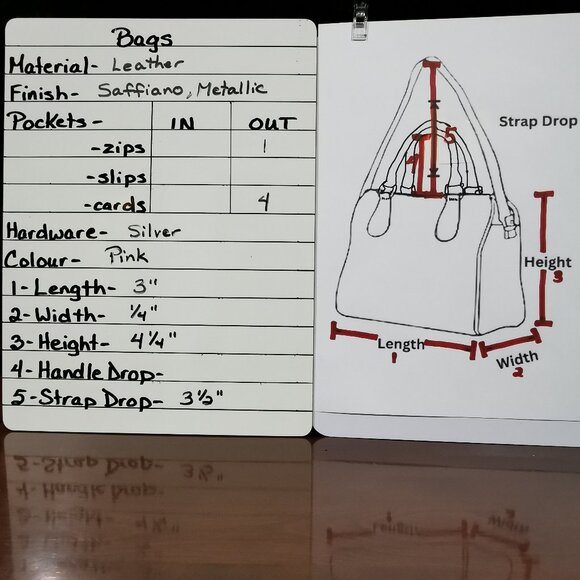 Bags
Material- Leather
Finish- Saffiano, Metallic
Pockets- IN OUT
-zips 1
-slips
-cards 4
Hardware- Silver
Colour- Pink
1-Length- 3"
2-Width- 1/4"
3-Height- 4 1/4"
4-Handle Drop-
5-Strap Drop- 3 1/2"
Strap Drop
5
4
Height
3
Length
1
Width
2